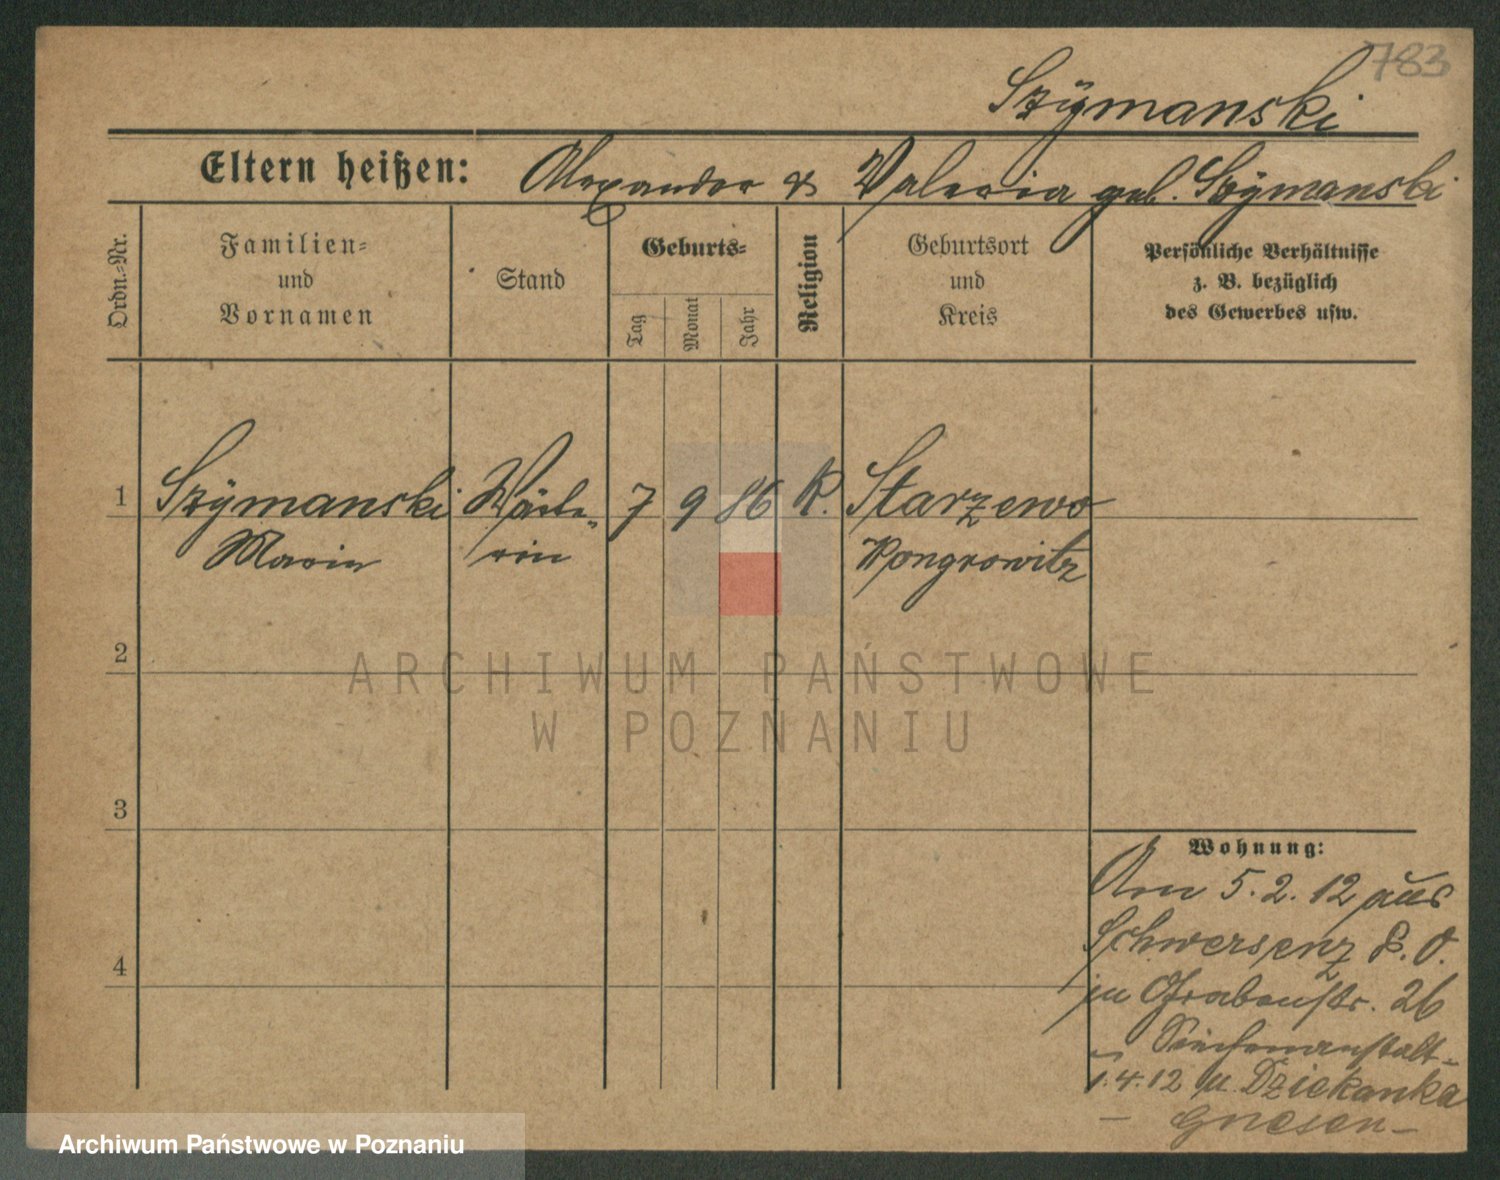 783
Szÿmanski
Eltern heißen: Alexander & Valeria geb. Szÿmanski
Ordn.=Nr.
Familien=
und
Vornamen
Stand
Geburts=
Tag
Monat
Jahr
Religion
Geburtsort
und
Kreis
Persönliche Verhältnisse
z. B. bezüglich
des Gewerbes usw.
1 Szÿmanski Wärte- 7 9 86 K. Starzewo
Maria rin Wongrowitz
2
3
4
Wohnung:
Am 5. 2. 12 aus
Schwersenz P. O.
zu Grabenstr. 26
Siechenanstalt-
1.4.12 n. Dziekanka
- Gnesen -
ARCHIWUM PAŃSTWOWE
W POZNANIU
Archiwum Państwowe w Poznaniu